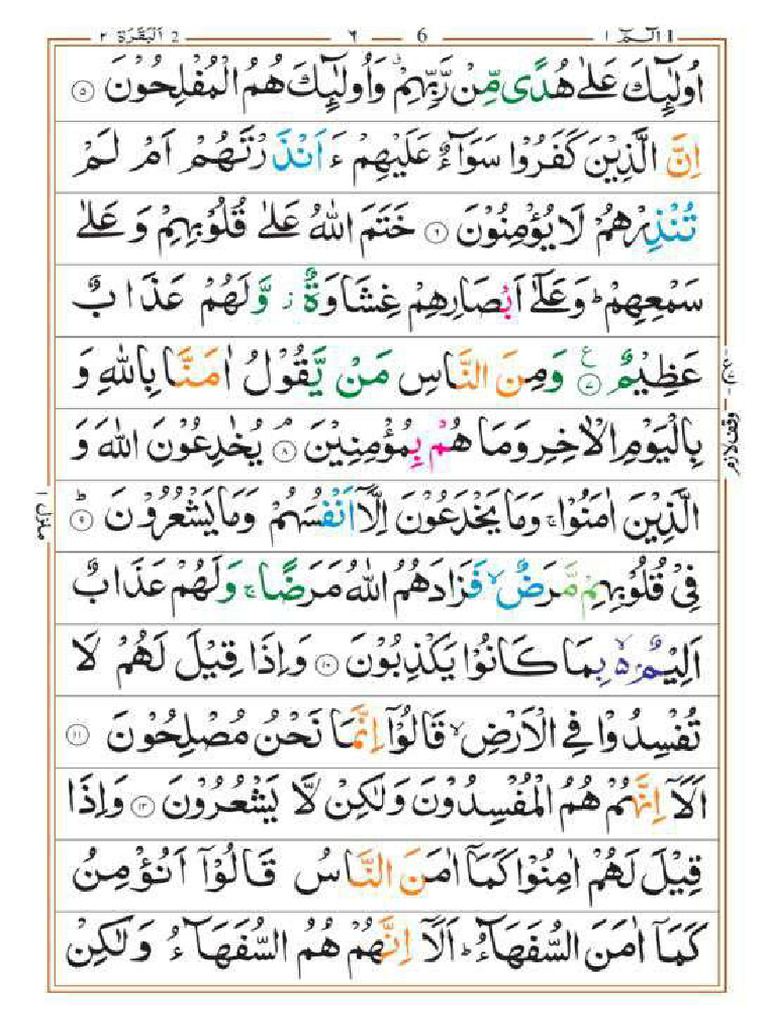 1 الٓـمّٓ ١ — 6 — ٦ — 2 اَلْبَقَرَة ٢
اُولٰٓئِكَ عَلٰى هُدًى مِّنْ رَّبِّهِمْ ۙ وَاُولٰٓئِكَ هُمُ الْمُفْلِحُوْنَ ۝٥
اِنَّ الَّذِيْنَ كَفَرُوْا سَوَآءٌ عَلَيْهِمْ ءَ اَنْذَرْتَهُمْ اَمْ لَمْ
تُنْذِرْهُمْ لَا يُؤْمِنُوْنَ ۝٦ خَتَمَ اللّٰهُ عَلٰى قُلُوْبِهِمْ وَ عَلٰى
سَمْعِهِمْ ؕ وَ عَلٰٓى اَبْصَارِهِمْ غِشَاوَةٌ ز وَّلَهُمْ عَذَابٌ
عَظِيْمٌ ۝٧ ع وَمِنَ النَّاسِ مَنْ يَّقُوْلُ اٰمَنَّا بِاللّٰهِ وَ
بِالْيَوْمِ الْاٰخِرِ وَمَا هُمْ بِمُؤْمِنِيْنَ ۝٨ يُخٰدِعُوْنَ اللّٰهَ وَ
وقف لازم
الَّذِيْنَ اٰمَنُوْا ۚ وَمَا يَخْدَعُوْنَ اِلَّاۤ اَنْفُسَهُمْ وَمَا يَشْعُرُوْنَ ؕ۝٩
منزل ١
فِيْ قُلُوْبِهِمْ مَّرَضٌ ۙ فَزَادَهُمُ اللّٰهُ مَرَضًا ۚ وَلَهُمْ عَذَابٌ
اَلِيْمٌۢ ۙ۬ بِمَا كَانُوْا يَكْذِبُوْنَ ۝١٠ وَاِذَا قِيْلَ لَهُمْ لَا
تُفْسِدُوْا فِي الْاَرْضِ ۙ قَالُوْۤا اِنَّمَا نَحْنُ مُصْلِحُوْنَ ۝١١
اَلَاۤ اِنَّهُمْ هُمُ الْمُفْسِدُوْنَ وَلٰكِنْ لَّا يَشْعُرُوْنَ ۝١٢ وَاِذَا
قِيْلَ لَهُمْ اٰمِنُوْا كَمَاۤ اٰمَنَ النَّاسُ قَالُوْۤا اَنُؤْمِنُ
كَمَاۤ اٰمَنَ السُّفَهَآءُ ؕ اَلَاۤ اِنَّهُمْ هُمُ السُّفَهَآءُ وَلٰكِنْ